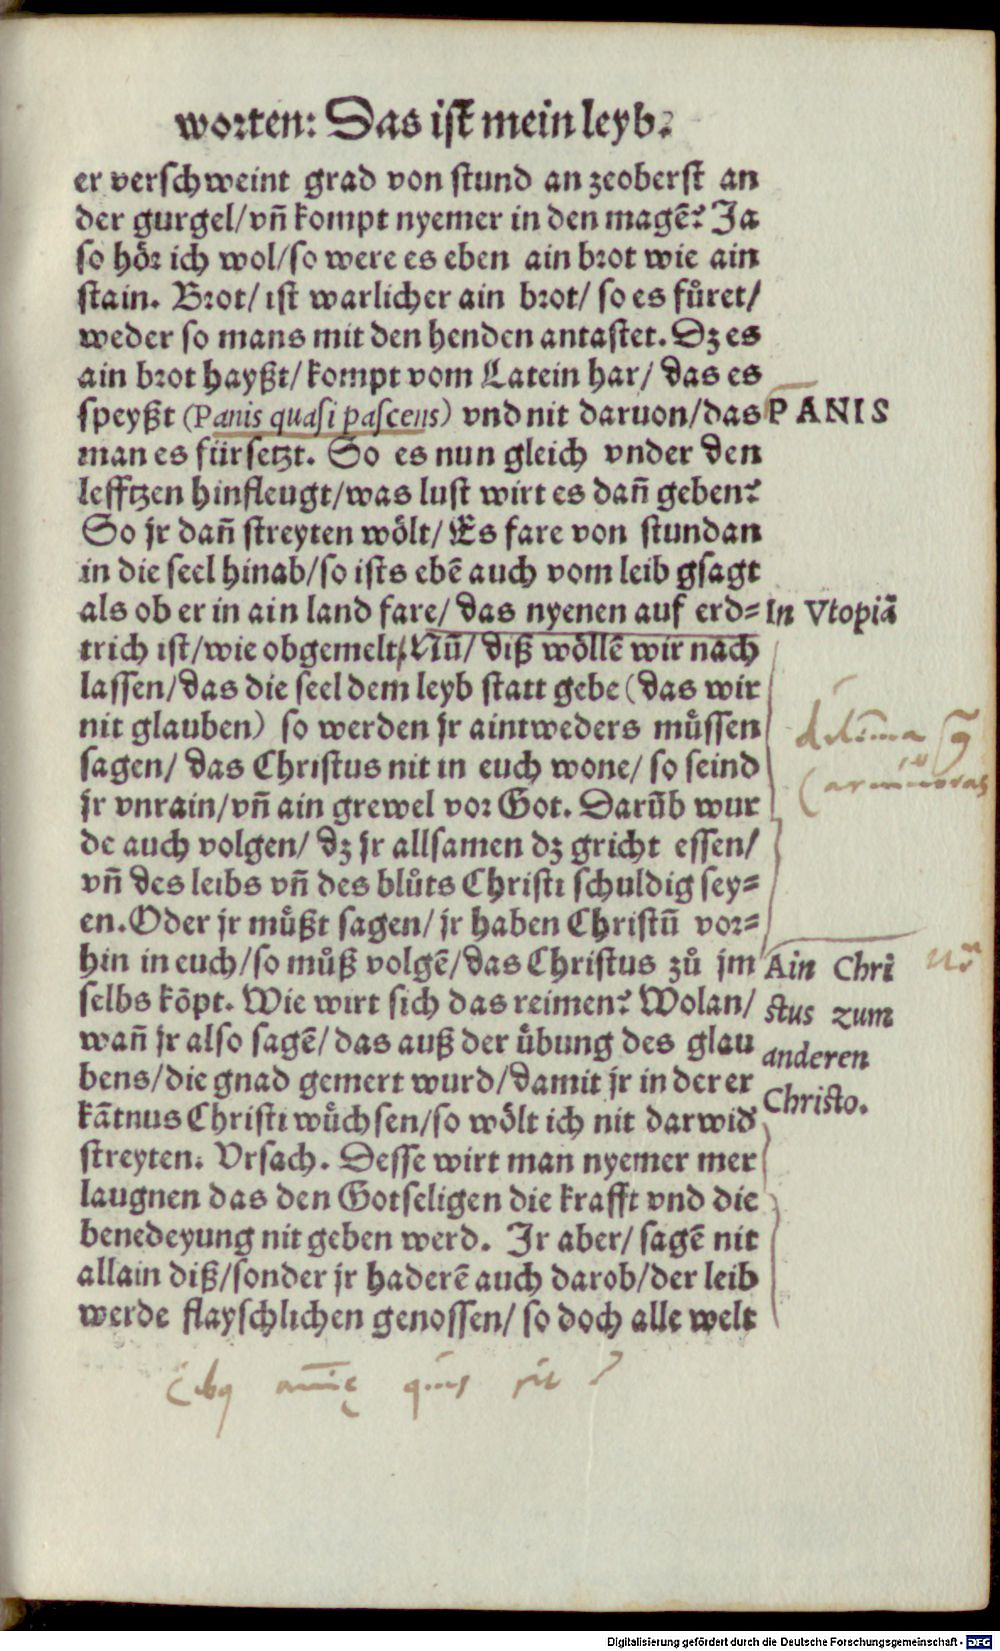 worten: Das ist mein leyb.
er verschweint grad von stund an zeoberst an
der gurgel/vñ kompt nyemer in den magẽ? Ja
so hoͤr ich wol/so were es eben ain brot wie ain
stain. Brot/ ist warlicher ain brot/ so es fuͤret/
weder so mans mit den henden antastet. Dz es
ain brot hayßt/ kompt vom Latein har/ das es
speyßt (Panis quasi pascens) vnd nit daruon/das
PANIS
man es fürsetzt. So es nun gleich vnder den
lefftzen hinfleugt/was lust wirt es dañ geben?
So jr dañ streyten woͤlt/ Es fare von stundan
in die seel hinab/so ists ebẽ auch vom leib gsagt
als ob er in ain land fare/ das nyenen auf erd=
In Vtopiã
trich ist/wie obgemelt. Nũ/ diß woͤllẽ wir nach
lassen/das die seel dem leyb statt gebe (das wir
nit glauben) so werden jr aintweders muͤssen
sagen/ das Christus nit in euch wone/ so seind
jr vnrain/vñ ain grewel vor Got. Darũb wur
de auch volgen/ dz jr allsamen dz gricht essen/
vñ des leibs vñ des bluͦts Christi schuldig sey=
en. Oder jr muͤßt sagen/ jr haben Christũ vor=
hin in euch/so muͦß volgẽ/das Christus zuͦ jm
Ain Chri
selbs kõpt. Wie wirt sich das reimen? Wolan/
stus zum
wañ jr also sagẽ/das auß der uͤbung des glau
anderen
bens/die gnad gemert wurd/damit jr in der er
Christo.
kãtnus Christi wuͤchsen/so woͤlt ich nit darwid
streyten. Vrsach. Desse wirt man nyemer mer
laugnen das den Gotseligen die krafft vnd die
benedeyung nit geben werd. Ir aber/ sagẽ nit
allain diß/sonder jr haderẽ auch darob/der leib
werde flayschlichen genossen/ so doch alle welt